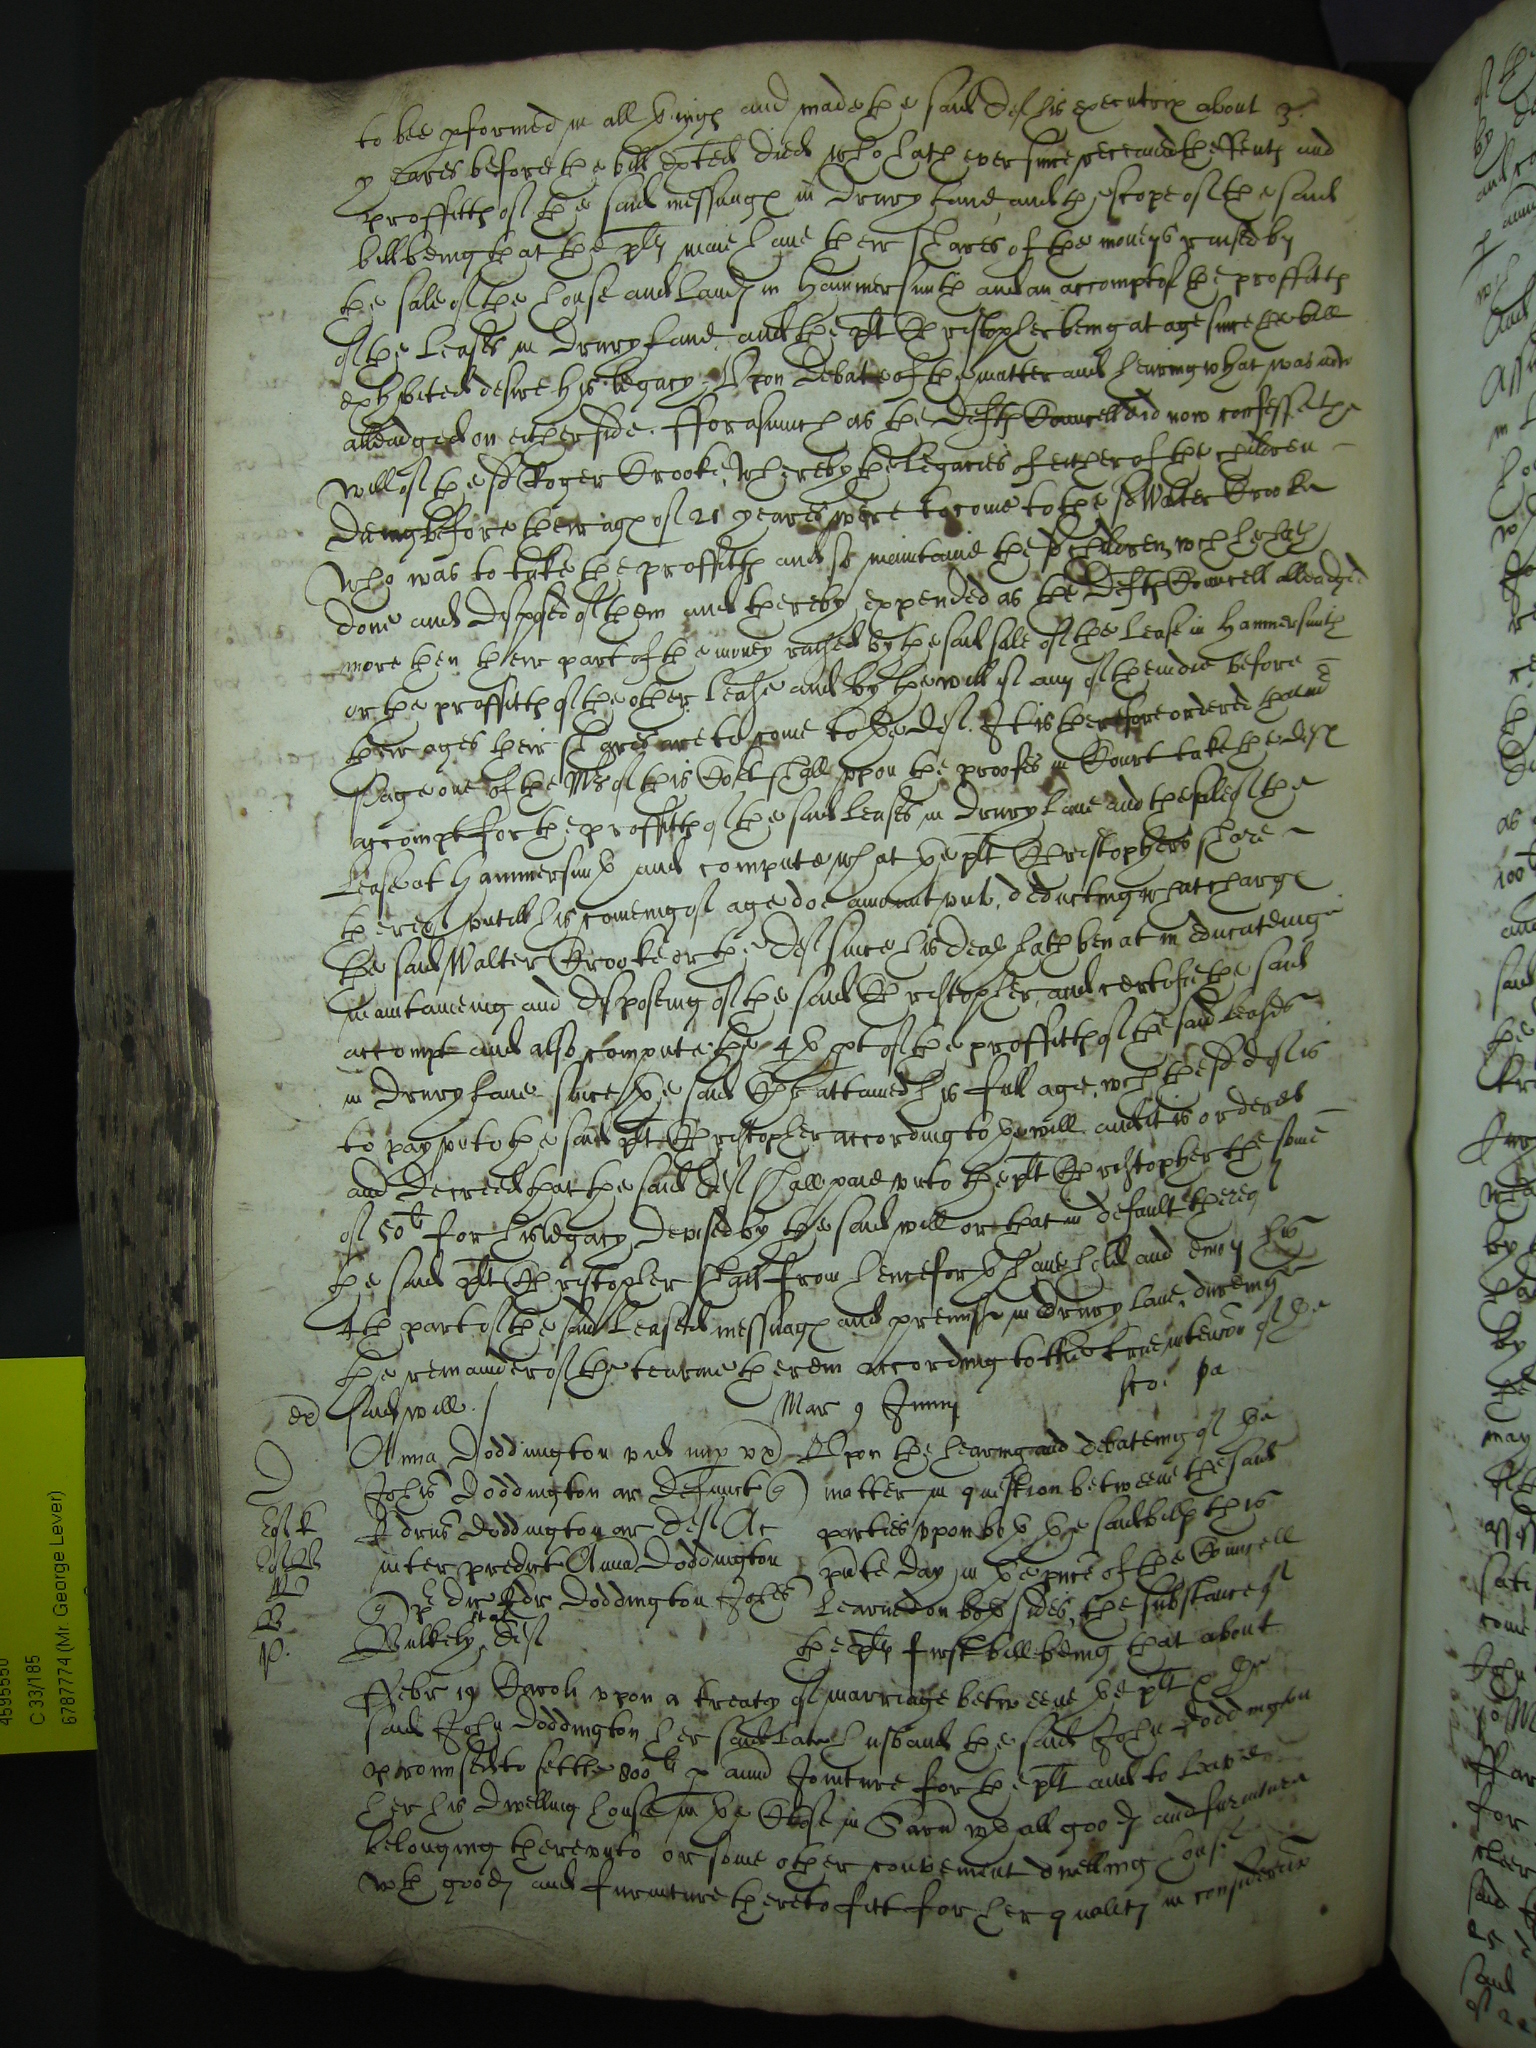 to bee pformed in all things and made the said Def his executrix about 3
yeares before the bill exhted died who hath ever since received the Rents and
proffitts of the said messuags in Drury Lane and the scope of the said
bill being that the plts maie have their shares of the moneys raised by
the sale of the house and Lands in Hammersmith and an accompt of the proffitts
of the Leases in Drury Lane and the plt Christopher being at age since the bill
exhibited desire his legacy. Upon debate of the matter and hearing what was now
alleadged on either side. fforasmuch as the Defts Councell did now confesse the
will of the sd Roger Crooke, whereby the Legacies of either of the children
dieing before their ages of 21 yeares were to come to the sd Walter Crooke
who was to take the proffitts and so maintaine the sd children, wch he hath
done and disposed of them and thereby expended as the Defts Councell alleadged
more then their part of the money raised by the said sale of the Lease in Hammersmith
or the proffitts of the other Lease and by the will if any of them die before
their ages their shares are to come to the def. It is therefore ordered that mr
Page one of the Mrs of this Cort shall upon the proofes in Court take the defts
accompt for the proffitts of the said Leases in Drury Lane and the sale of the
Lease at Hammersmith and compute what the plt Christophers share
thereof untill his comeing of age doe amount unto, deducting what charge
the said Walter Crooke or the def since his death hath ben at in educateing
maintaineing and disposeing of the said Christopher, and certifie the said
accompt and also compute the 4th pt of the proffitts of the said Leases
in Drury Lane since the said Chr attained his full age, wch the sd def is
to pay unto the said plt Christopher according to the will and it is ordered
and decreed that the said def shall paie unto the plt Christopher the some
of 50l for his legacy devised by the said will or that in default thereof
the said plt Christopher shall from henceforth have hold and enioy his
4th part of the said Leased messuags and premisses in Drury Lane, dureing
the remainder of the tearme therein according to the true intencon of the
said will. /
ex
Mar 9 Junij
Anna Doddington vid nup ux
Johis Doddington ar defunct
Edrus Doddington ar def Ac
inter predict Anna Doddington
qr dic Edr Doddington Johes
Bulkely et al def
Upon the hearing and debateing of the
matter in question betweene the said
parties upon both the said bills this
pnte day in the pnce of the Councell
Learned on both sides, the substance of
the plts first bill being that about
Febr 19 Caroli upon a treaty of marriage betweene the plt &amp; the
said John Doddington her said late husband the said John Doddington
promised to settle 800l p annu Jointure for the plt and to leave
her his dwelling house in the Close in Sarum wth all goods and furniture
belonging thereunto or some other convenient dwelling house
wth goods and furniture thereto fitt for her quality in consideracon
4595550
C 33/185
6787774 (Mr. George Lever)